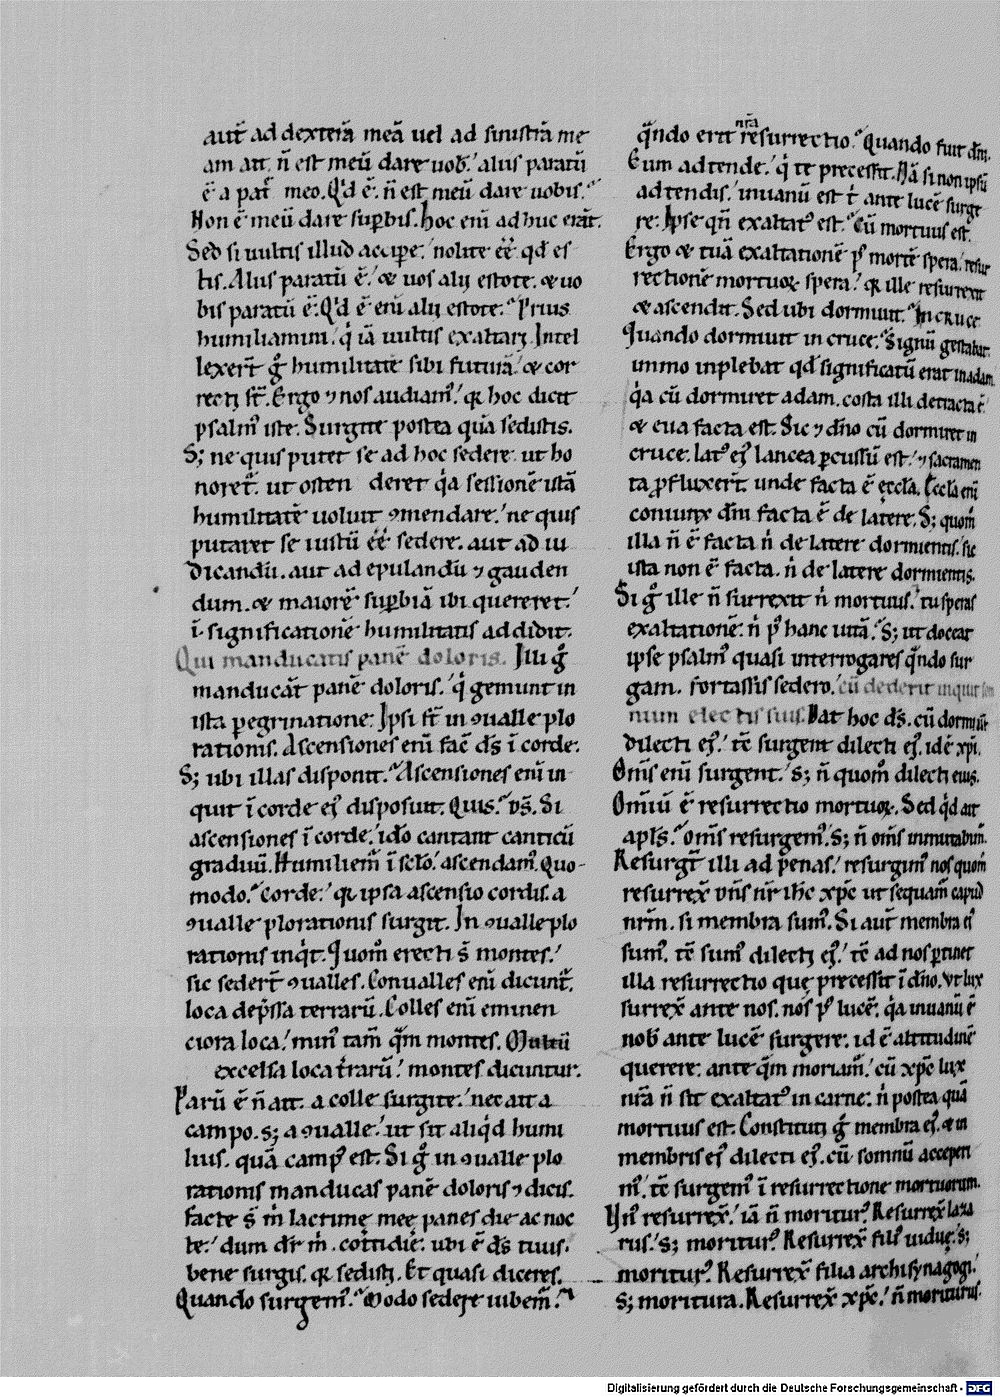 aut̄ ad dexterā meā uel ad sinistrā me
am att. n̄ est meū dare uob. alus paratū
ē a pat̄ meo. Qd ē. n̄ est meū dare uobis.
Non ē meū dare supbis. hoc enī adhuc erāt.
Sed si uultis illud accipe. nolite ēē qd es
tis. Alus paratū ē. & uos alij estote. & uo
bis paratū ē. Qd ē enī alij estote. Prius
humiliamini. q̇ iā uultis exaltari. Intel
lexert̄ g̊ humilitatē sibi futurā. & cor
recti st̄. Ergo ⁊ nos audiam᾽. q̄ hoc dicit
psalm᾽ iste. Surgite postea quā sedistis.
S; ne quis putet se ad hoc sedere. ut ho
noret᾽. ut osten deret q̇a sessionē istā
humilitatē uoluit ꝯmendare. ne quis
putaret se iustū ēē sedere. aut ad iu
dicandū. aut ad epulandū ⁊ gauden
dum. & maiorē supbiā ibi quereret.
i. significationē humilitatis addidit.
Qui manducatis panē doloris. Illi g̊
manducāt panē doloris. q̇ gemunt in
ista peregrinatione. Ipsi st̄ in ꝯualle plo
rationis. Ascensiones enī fac̄ d̄s ī corde.
S; ubi illas disponit. Ascensiones enī in
quit ī corde ei᾽ disposuit. Quis. D̄s. Si
ascensiones ī corde. ido cantant canticū
graduū. Humiliem᾽ ī sclo. ascendam᾽. Quo-
modo. Corde. q̄ ipsa ascensio cordis. a
ꝯualle plorationis surgit. In ꝯualle plo
rationis inq̇t. Quom̊ erecti s̄ montes.
sic sedert̄ ꝯualles. Conualles enī dicunt᾽.
loca depssa terrarū. Colles enī eminen
ciora loca. min᾽ tam̄ qm̄ montes. Multū
excelsa loca t̄rarū. montes dicuntur.
Parū ē n̄ att. a colle surgite. nec att a
campo. s; a ꝯualle. ut sit aliq̇d humi
lius. quā camp᾽ est. Si g̊ in ꝯualle plo
rationis manducas panē doloris ⁊ dicis.
facte s̄ m̄ lacrime mee panes die ac noc
te. dum dr̄ m̄. cottidie. ubi ē d̄s tuus.
bene surgis. q̄ sedisti. Et quasi diceres.
Quando surgem᾽. Modo sedere iubem᾽.
nr̄a
q̄ndo erit resurrectio. Quando fuit dn̄i.
Eum adtende. q̇ te precessit. Nā si non ipsū
adtendis. inuanū est t̄ ante lucē surge
re. Ipse qn̄ exaltat᾽ est. Cū mortuus est.
Ergo & tuā exaltationē p᾽ mortē spera. resur
rectionē mortuoꝝ spera. q̄ ille resurrexit
& ascendit. Sed ubi dormiuit. In cruce.
Quando dormiuit in cruce. Signū gestabat.
immo inplebat qd significatū erat in adam.
q̇a cū dormiret adam. costa illi detracta ē.
& eua facta est. Sic ⁊ dn̄o cū dormiret in
cruce. lat᾽ ei᾽ lancea pcussū est. ⁊ sacramen
ta pfluxert̄. unde facta ē eccla. Eccla enī
coniunx dn̄i facta ē de latere. S; quom̊
illa n̄ ē facta n̄ de latere dormientis. sic
ista non ē facta. n̄ de latere dormientis.
Si g̊ ille n̄ surrexit n̄ mortuus. tu speras
exaltationē. n̄ p᾽ hanc uitā. S; ut doceat
ipse psalm᾽ quasi interrogares q̄ndo sur
gam. fortassis sedero. cū dederit inquit som
nium electis suis. Dat hoc d̄s. cū dormierit
dilecti ei᾽. tc̄ surgent dilecti ei᾽. id ē xp̄i.
Om̄s enī surgent. s; n̄ quom̊ dilecti eius.
Omiū ē resurrectio mortuoꝝ. Sed q̇d ait
apl̄s. om̄s resurgem᾽. s; n̄ om̄s inmutabim᾽.
Resurgt̄ illi ad penas. resurgim᾽ nos quom̊
resurrex̄ dn̄s nr̄ ih̄c xp̄c ut sequam᾽ capud
nr̄m. si membra sum᾽. Si aut̄ membra ei᾽
sum᾽. tc̄ sum᾽ dilecti ei᾽. tc̄ ad nos ptinet
illa resurrectio que precessit ī dn̄o. Vt lux
surrex̄ ante nos. nos p᾽ lucē. q̇a inuanū ē
nob᾽ ante lucē surgere. id ē altitudinē
querere. ante qm̄ moriam᾽. cū xp̄c lux
nr̄a n̄ sit exaltat᾽ in carne. n̄ postea quā
mortuus est. Constituti g̊ membra ei᾽. & in
membris ei᾽ dilecti ei᾽. cū somnū acceperi
m᾽. tc̄ surgem᾽ ī resurrectione mortuorum.
Vn᾽ resurrex̄. iā n̄ moritur᾽. Resurrex̄ laza
rus. s; moritur᾽. Resurrex̄ fili᾽ uidue. s;
moritur᾽. Resurrex̄ filia archisynagogi.
s; moritura. Resurrex̄ xp̄c. n̄ moriturus.
Digitalisierung gefördert durch die Deutsche Forschungsgemeinschaft - DFG